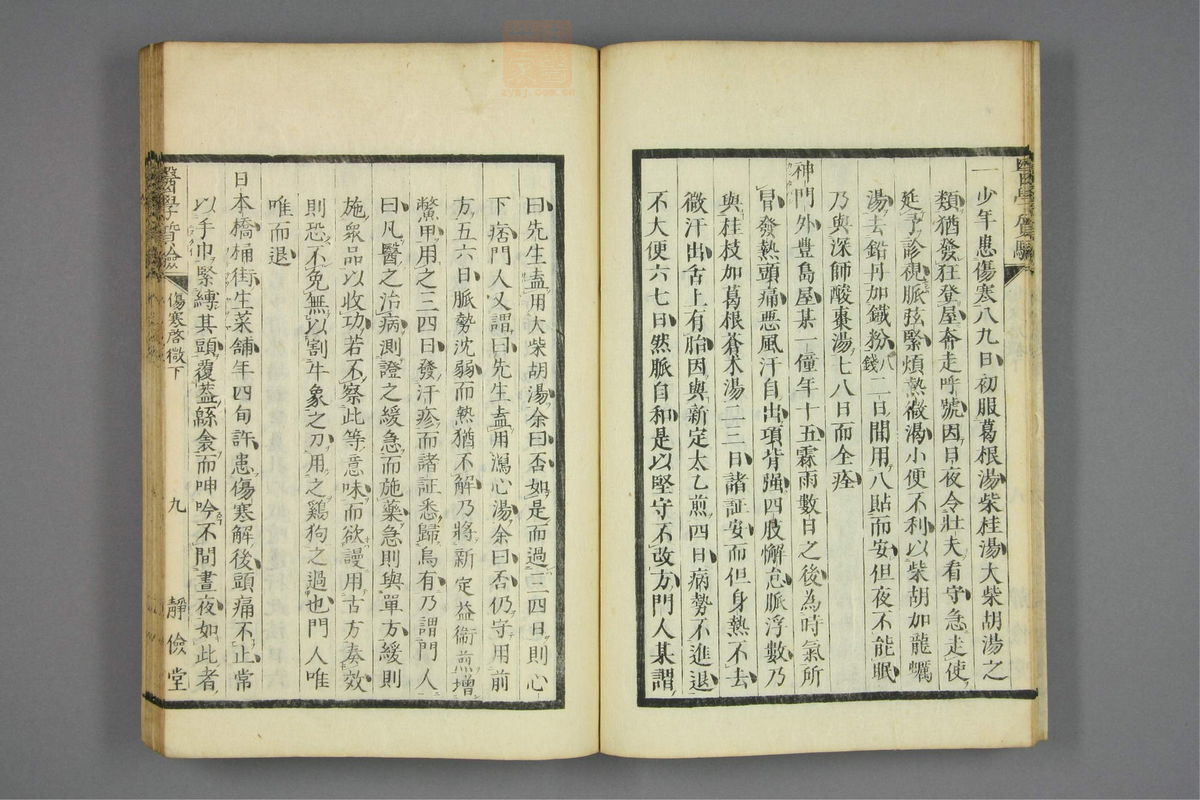 一少年患傷寒八九日初服葛根湯柴桂湯大柴胡湯之
類猶發狂登屋奔走呼號因日夜令壯夫看守急走使
延予診視脈弦緊煩熱微渴小便不利以柴胡加龍蠣
湯去鉛丹加鐵粉八錢二日間用八貼而安但夜不能眠
乃與深師酸棗湯七八日而全痊
神門外豊島屋某一僮年十五霖雨數日之後為時氣所
冒發熱頭痛惡風汗自出項背强四肢懈怠脈浮數乃
與桂枝加葛根蒼朮湯二三日諸証安而但身熱不去
微汗出舌上有胎因與新定太乙煎四日病勢不進退
不大便六七日然脈自和是以堅守不改方門人某謂
曰先生盍用大柴胡湯余曰否如是而過三四日則心
下痞門人又謂曰先生盍用瀉心湯余曰否仍守用前
方五六日脈勢沈弱而熱猶不解乃將新定益衞煎增
鱉甲用之三四日發汗疹而諸証悉歸烏有乃謂門人
曰凡醫之治病測證之緩急而施藥急則與單方緩則
施眾品以收功若不察此等意味而欲謾用古方奏效
則恐不免無以割牛象之刀用之鷄狗之過也門人唯
唯而退
日本橋桶街生菜舖年四旬許患傷寒解後頭痛不止常
以手巾緊縛其頭覆蓋緜衾而呻吟不間晝夜如此者
醫學質驗
傷寒啓微下
九
靜儉堂